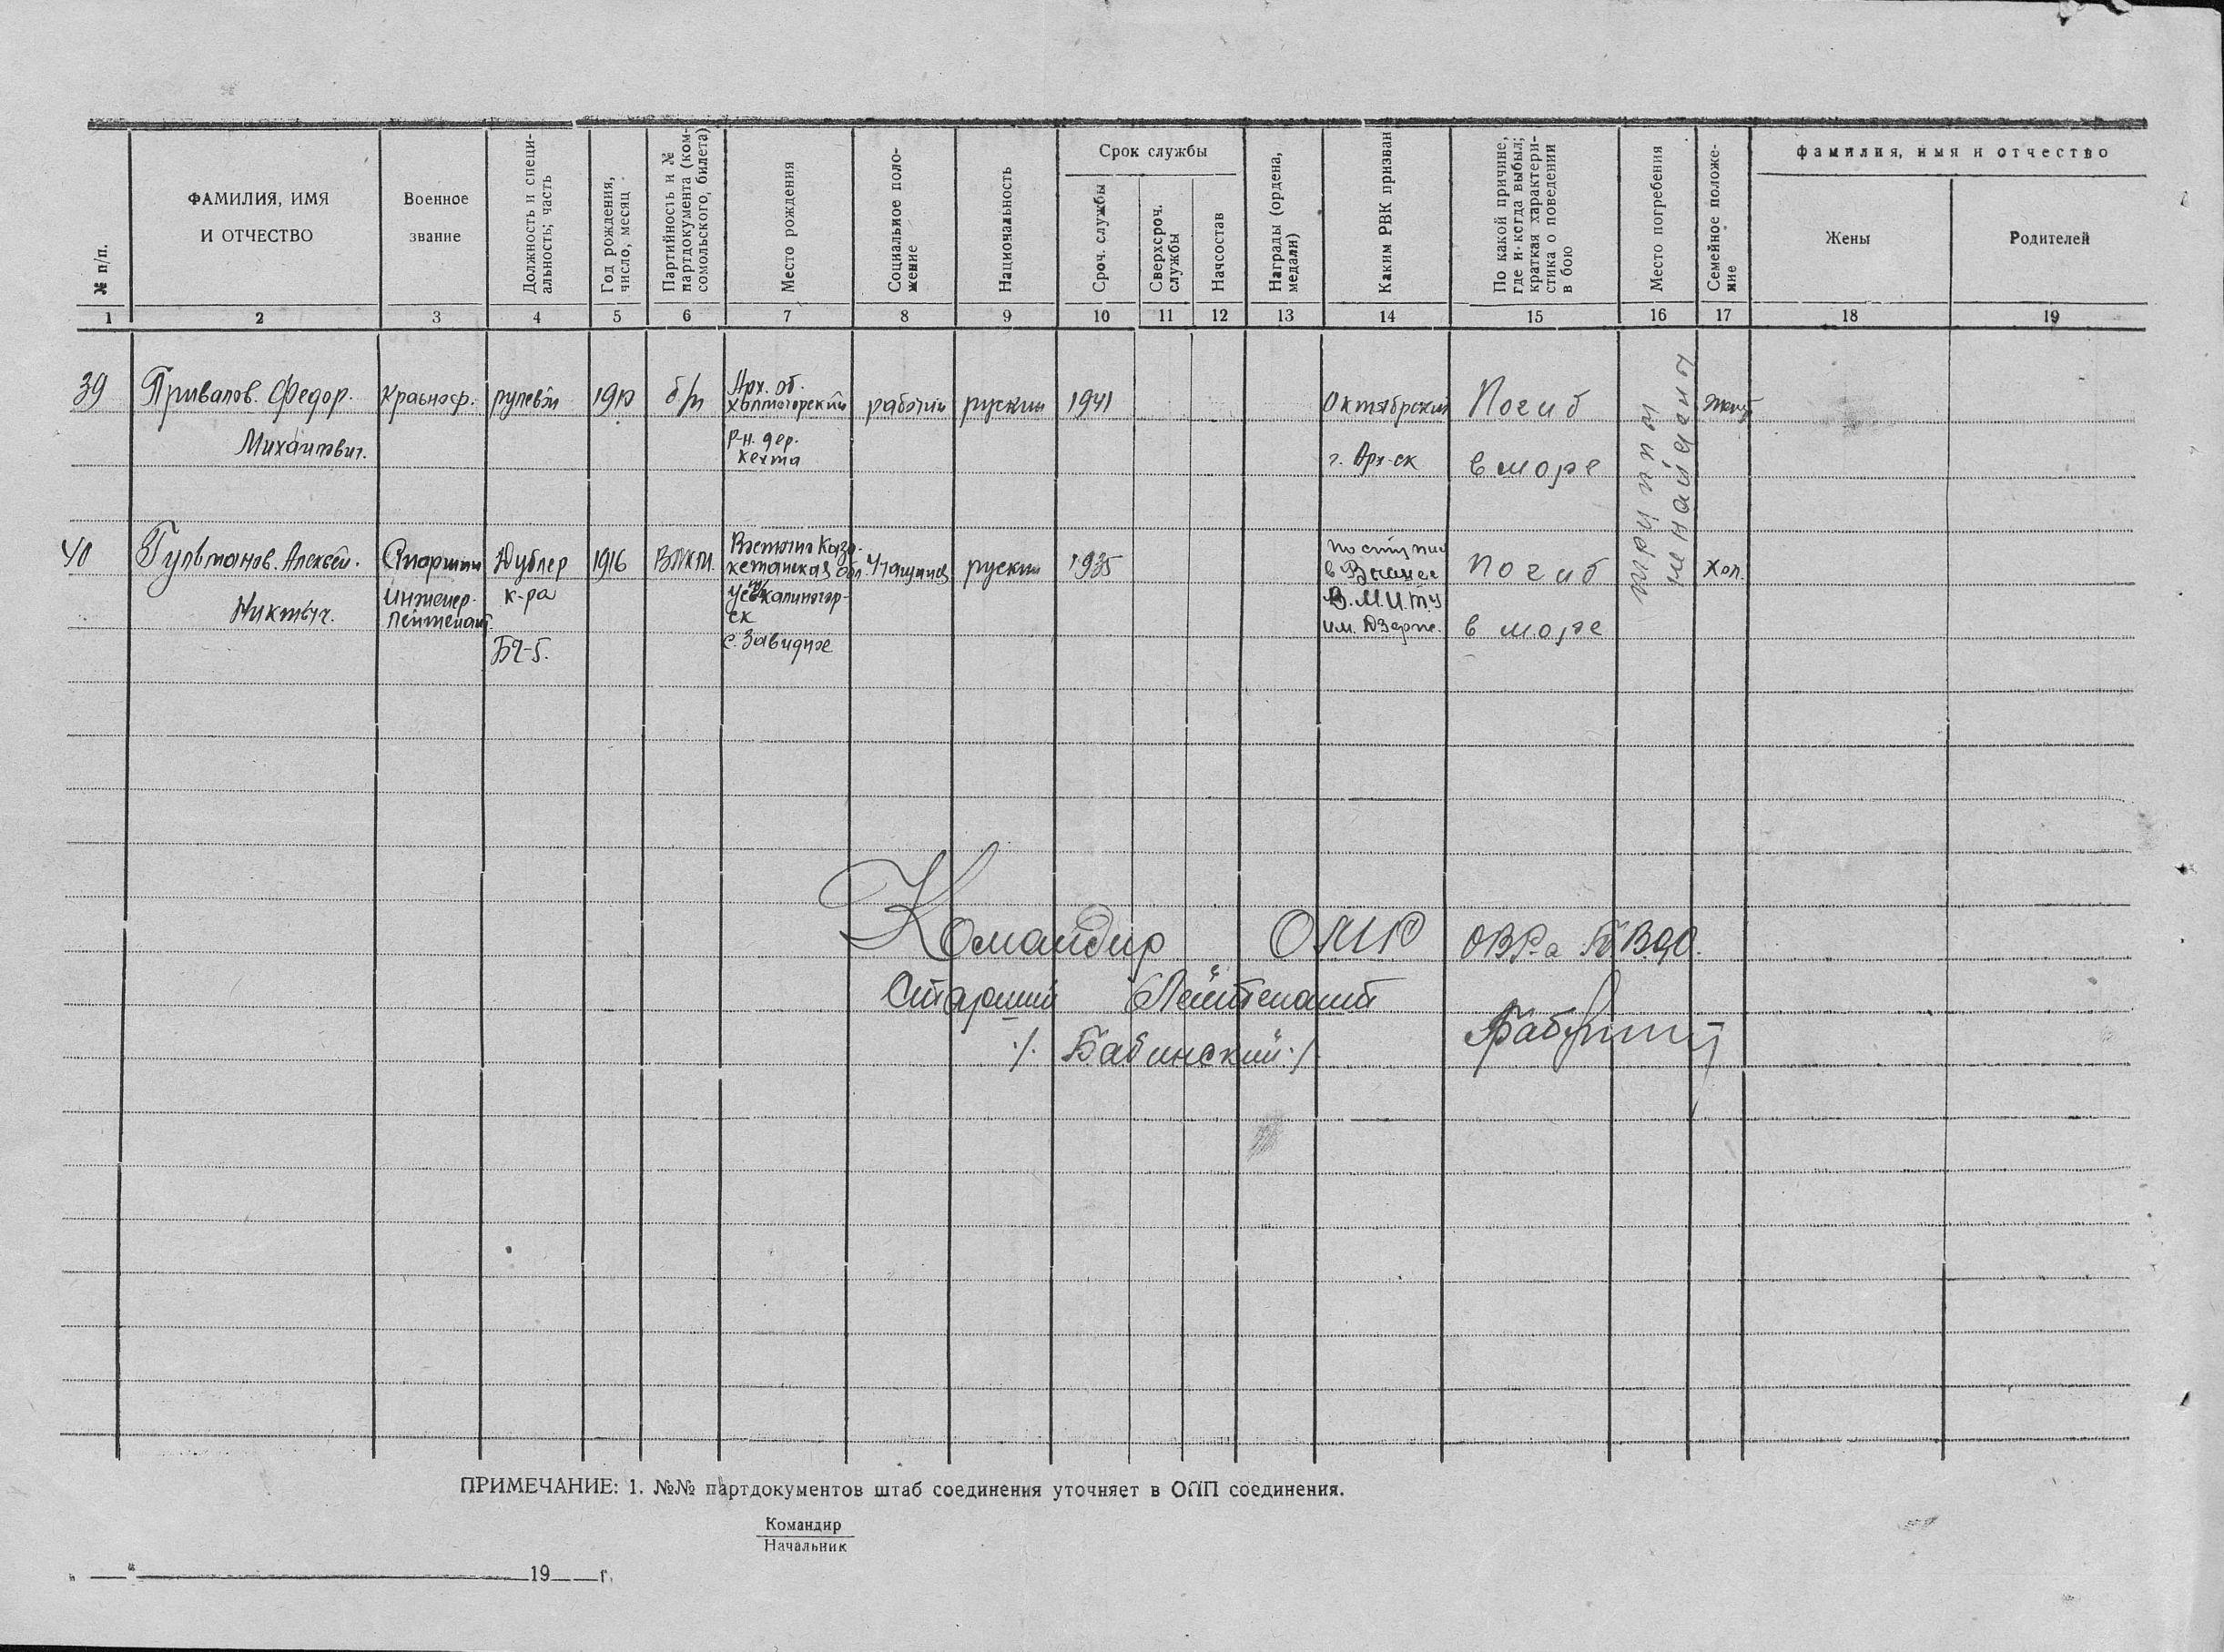 № п/п.
ФАМИЛИЯ, ИМЯ
И ОТЧЕСТВО
Военное
звание
Должность и специ-
альность; часть
Год рождения,
число, месяц
Партийность и №
партдокумента (ком-
сомольского, билета)
Место рождения
Социальное поло-
жение
Национальность
Срок службы
Сроч. службы
Сверхсроч.
службы
Начсостав
Награды (ордена,
медали)
Каким РВК призван
По какой причине,
где и когда выбыл;
краткая характери-
стика о поведении
в бою
Место погребения
Семейное положе-
ние
фамилия, имя и отчество
Жены
Родителей
1 2 3 4 5 6 7 8 9 10 11 12 13 14 15 16 17 18 19
39
Привалов. Федор.
Михайлович.
Краснофл.
рулевой
1910
б/п
Арх. об.
Холмогорский
р-н. дер.
Кехта
рабочий
руский
1941
Октябрский
г. Арх-ск
Погиб
в море
трупы
не найдены
40
Гультманов. Алексей.
Никтыч.
Старший
инженер-
лейтенант.
Дублер
к-ра
БЧ-5.
1916
ВЛКСМ.
кстанская обл.
с. Завидное
Учащийся
руский
1935
поступил
в Высшее
В.М.И.У
им. Дзерж.
Погиб
в море
Хол.
Командир ОВРа БВФ.
Старший Лейтенант
/. Бабинский ./
ПРИМЕЧАНИЕ: 1. №№ партдокументов штаб соединения уточняет в ОПП соединения.
Командир
Начальник
„ “ 19 г.